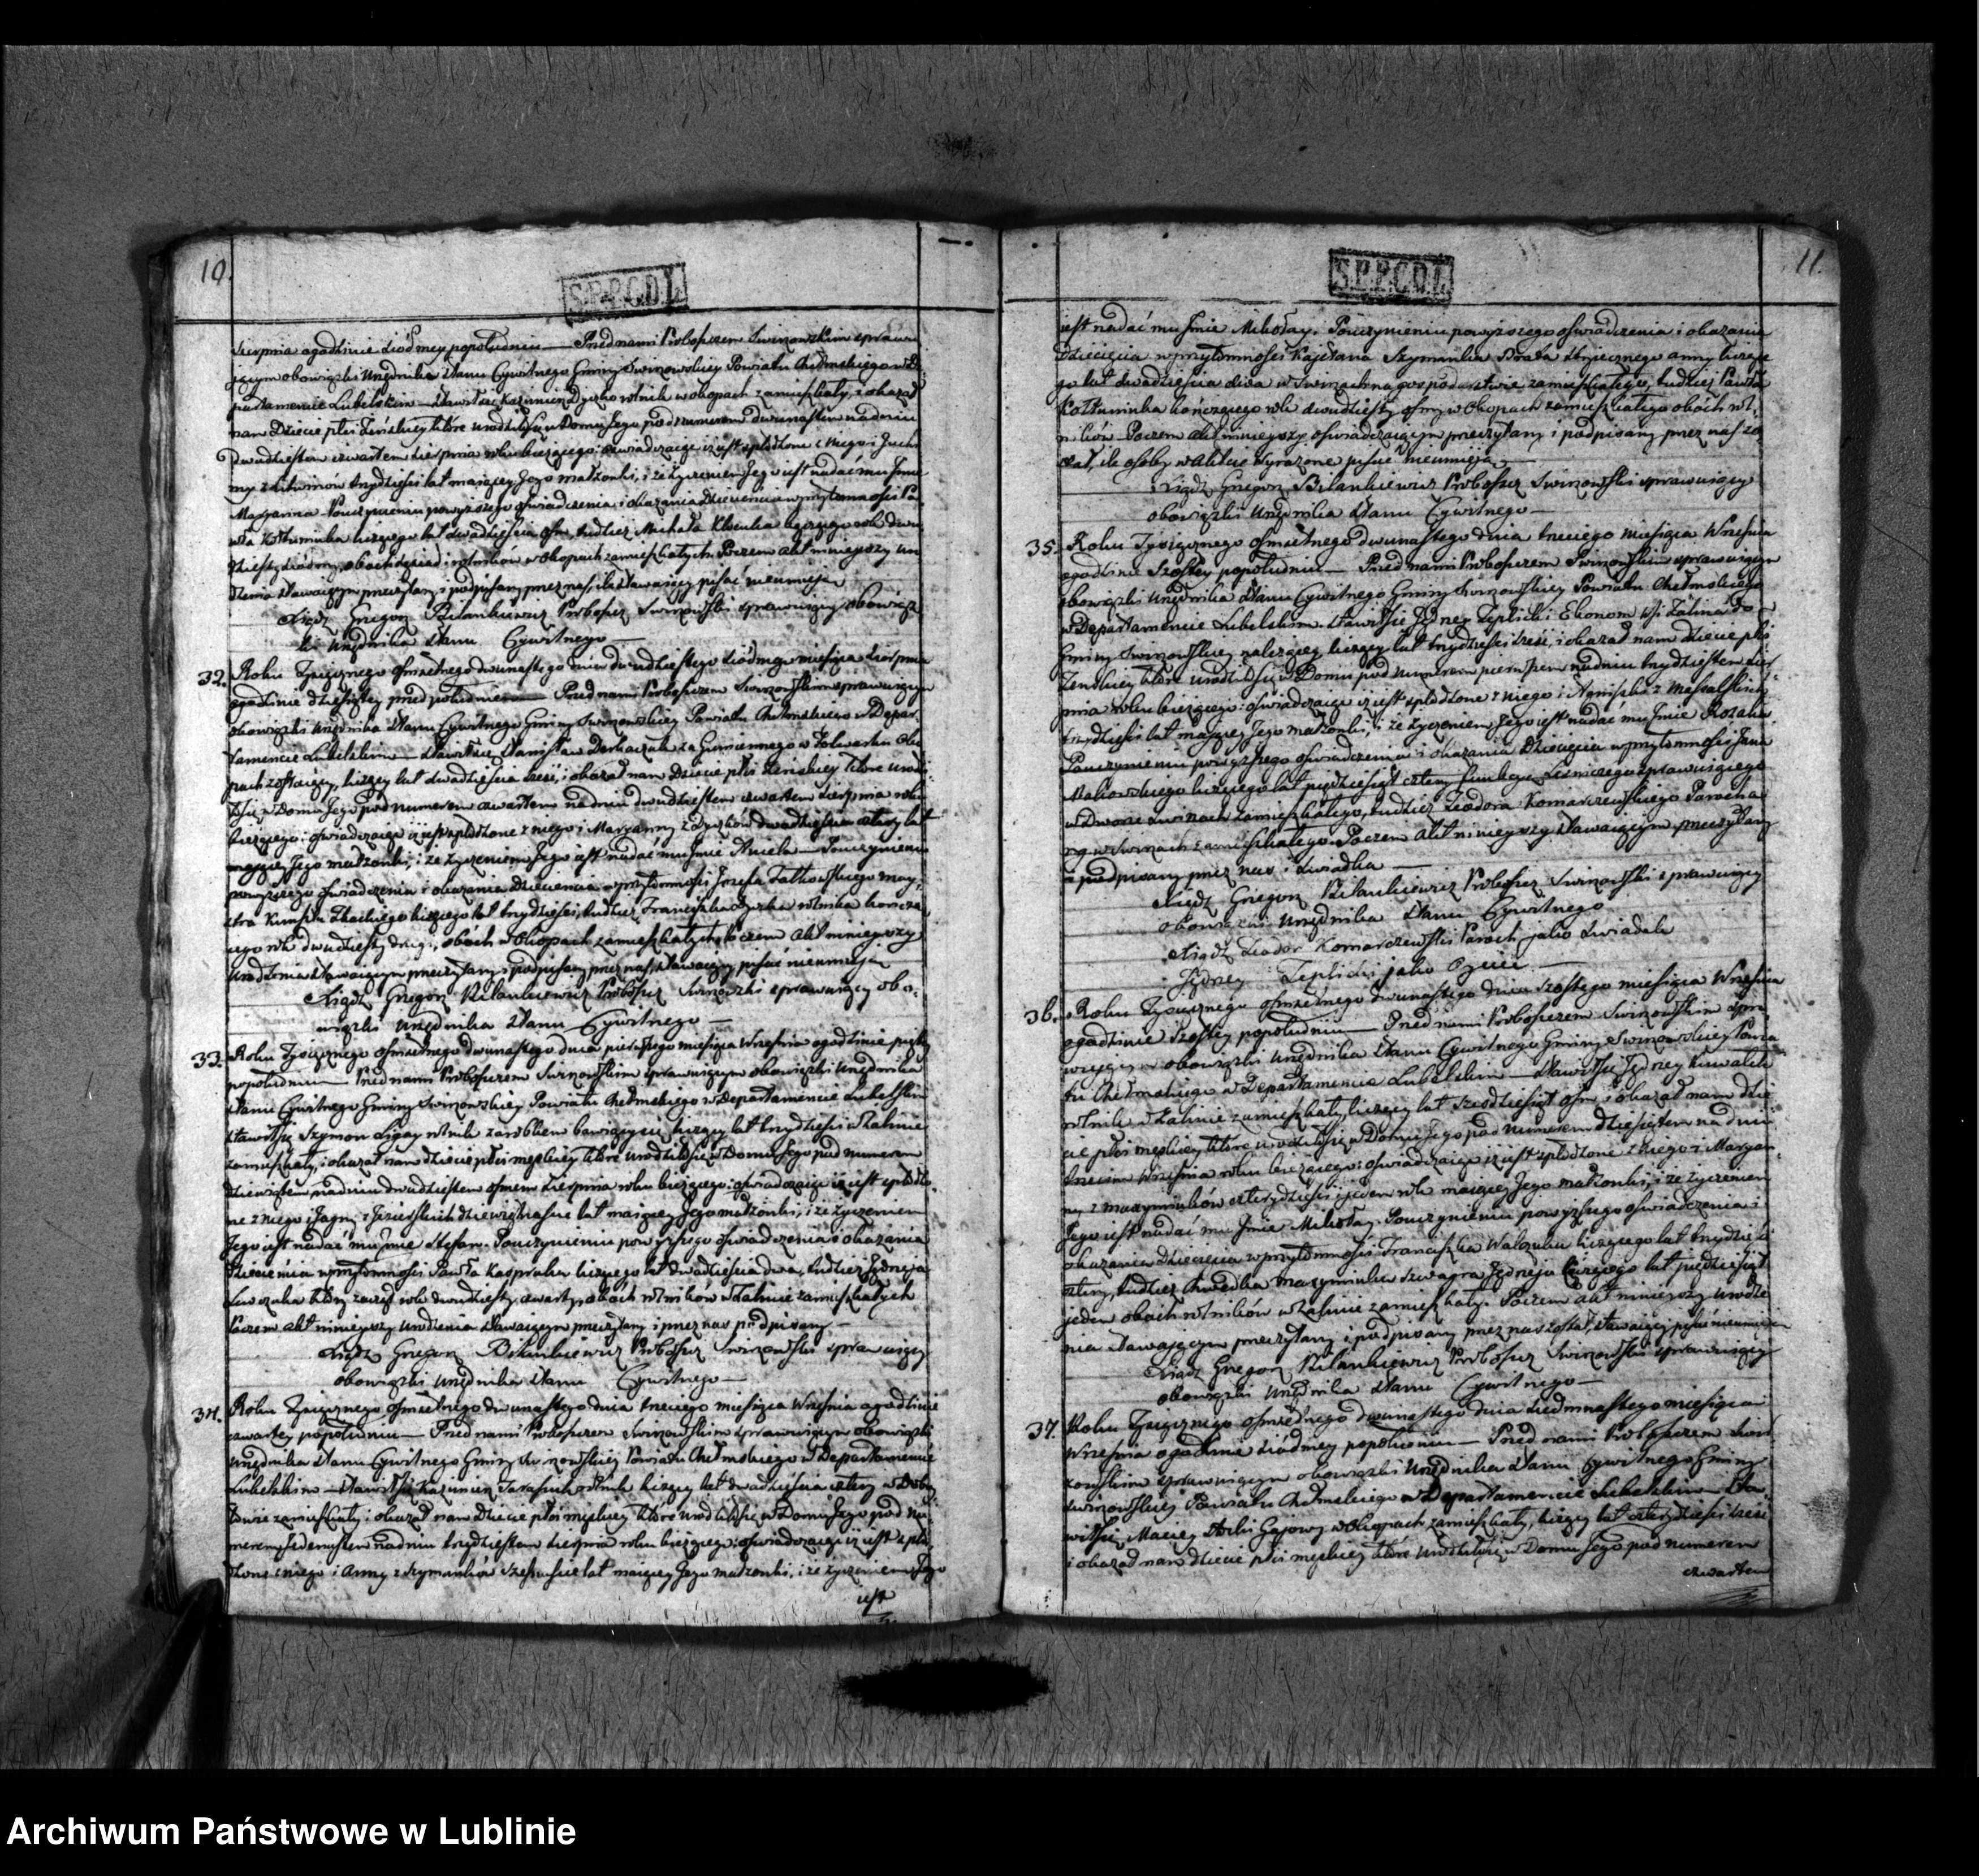 10.
S.P.P.C.D.L.
Sierpnia o godzinie siodmey popołudniu — Przed nami Proboszczem Swirzowskim sprawu
iącym obowiązki Urzędnika Stanu Cywilnego Gminy Swirzowskiey Powiatu Chełmskiego w De
partamencie Lubelskim — Stawił się Kazimierz Dyczko rolnik w Okopach zamieszkały, i okazał
nam Dziecie płci Zeńskiey które urodziło się w Domu Jego pod numerem dwunastym na dniu
dwudziestem czwartem Sierpnia roku bieżącego: oswiadczaiąc iż iest spłodzone z niego i
ny z Litwinow trzydzieści lat maiącey Jego małżonki, i że życzeniem Jego iest nadać mu Jmie
Maryanna Po uczynieniu powyższego oswiadczenia i okazania Dziecięcia w przytomności Pa
wła Kottuniuka liczącego lat dwadzieścia osm, tudzież Michała liczącego rok dwu
dziesty siodmy, obach sąsiad: rolnikow w Okopach zamieszkałych. Poczem akt ninieyszy uro
dzenia stawaiącym przeczytany i podpisany przez nas, iż stawaiący pisać nieumieją
Xiądz Gregorz Bilankiewicz Proboszcz Swirzowski sprawuiący obowiąz
ki Urzędnika Stanu Cywilnego —
32. Roku Tysiącznego osmsetnego dwunastego dnia dwudziestego siodmego miesiąca Sierpnia
o godzinie dziesiątey przed południem — Przed nami Proboszczem Swirzowskim sprawuiącym
obowiązki Urzędnika Stanu Cywilnego Gminy Swirzowskiey Powiatu Chełmskiego w Depar
tamencie Lubelskim — Stawił się Stanisław za Gumiennego w Folwarku Oko
pach zostaiący, liczący lat dwadzieścia sześć, i okazał nam Dziecie płci Zeńskiey które urodzi
ło się w Domu Jego pod numerem czwartem na dniu dwudziestem czwartem Sierpnia roku
bieżącego: oswiadczaiąc iż iest spłodzone z niego i Maryanny z Dyczkow dwadzieścia cztery lat
maiącey Jego małżonki, i że życzeniem Jego iest nadać mu Jmie Aniela — Po uczynieniu
powyższego oswiadczenia i okazania Dziecięcia w przytomności Jozefa Fatkowskiego may
stra Kunsztu Tkackiego liczącego lat trzydzieści, tudzież Franciszka Dyczka rolnika kończą
cego rok dwudziesty drugi, obóch w Okopach zamieszkałych. Poczem Akt ninieyszy
Urodzenia stawaiącym przeczytany i podpisany przez nas, stawaiący pisać nieumieją
Xiądz Gregorz Bilankiewicz Proboszcz Swirzowski sprawuiący obo-
wiązki Urzędnika Stanu Cywilnego —
33. Roku Tysiącznego osmsetnego dwunastego dnia pierwszego miesiąca Września o godzinie piątey
popołudniu — Przed nami Proboszczem Swirzowskim sprawuiącym obowiązki Urzędnika
Stanu Cywilnego Gminy Swirzowskiey Powiatu Chełmskiego w Departamencie Lubelskim
stawił się Szymon Ligay rolnik zarobkiem bawiący się liczący lat trzydzieści w Żalinie
zamieszkały, i okazał nam dziecie płci męskiey które urodziło się w Domu Jego pod numerem
dziewiątem na dniu dwudziestem osmem Sierpnia roku bieżącego: oswiadczaiąc iż iest spłodzo
ne z niego i Jagny z dziewiętnaście lat maiącey Jego małżonki, i że życzeniem
Jego iest nadać mu Jmie Stefan. Po uczynieniu powyższego oswiadczenia i okazania
Dziecięcia w przytomności Pawła Kaspruka liczącego lat dwadzieścia dwa, tudzież Jędrzeja
Lewczuka który zaczął rok dwudziesty czwarty, obóch rolników w Żalinie zamieszkałych
Poczem akt ninieyszy Urodzenia stawaiącym przeczytany i przez nas podpisany —
Xiądz Gregorz Bilankiewicz Proboszcz Swirzowski sprawuiący
obowiązki Urzędnika Stanu Cywilnego —
34. Roku Tysiącznego osmsetnego dwunastego dnia trzeciego miesiąca Września o godzinie
czwartey popołudniu — Przed nami Proboszczem Swirzowskim sprawuiącym obowiązki
Urzędnika Stanu Cywilnego Gminy Swirzowskiey Powiatu Chełmskiego w Departamencie
Lubelskim — Stawił się Kazimierz Tarasiuk rolnik liczący lat dwadzieścia cztery w
zamieszkały i okazał nam Dziecie płci męskiey które urodziło się w Domu Jego pod Nu
merem Jedenastem na dniu trzydziestem Sierpnia roku bieżącego: oswiadczaiąc iż iest spło
dzone z niego i Anny z Szymanków szesnaście lat maiącey Jego małżonki, i że życzeniem Jego
iest
11.
S.P.P.C.D.L.
iest nadać mu Jmie Mikołay. Po uczynieniu powyższego oswiadczenia i okazania
Dziecięcia w przytomności Kajetana Szymanka Brata Stryiecznego anny liczące
go lat dwadzieścia dwa w Swirzach na gospodarstwie zamieszkałego, tudzież Pawła
Kottuniuka kończącego rok dwudziesty osmy w Okopach zamieszkałego obóch rol-
ników. Poczem akt ninieyszy oswiadczaiącym przeczytany i podpisany przez nas zo
stał, ile osoby w Akcie wyrażone pisać nieumieją —
Xiądz Gregorz Bilankiewicz Proboszcz Swirzowski sprawuiący
obowiązki Urzędnika Stanu Cywilnego —
35. Roku Tysiącznego osmsetnego dwunastego dnia trzeciego miesiąca Września
o godzinie szostey popołudniu — Przed nami Proboszczem Swirzowskim sprawuiącym
obowiązki Urzędnika Stanu Cywilnego Gminy Swirzowskiey Powiatu Chełmskiego
w Departamencie Lubelskim. Stawił się Jędrzey Teplicki Ekonom wsi Żalina do
Gminy Swirzowskiey należącey, liczący lat trzydzieści sześć, i okazał nam dziecie płci
Zenskiey które urodziło się w Domu pod Numerem pierwszem na dniu trzydziestem Sier-
pnia roku bieżącego: oswiadczaiąc iż iest spłodzone z niego i Agniszki z
trzydzieści lat maiącey Jego małżonki, i że życzeniem Jego iest nadać mu Jmie Rozalia
Po uczynieniu powyższego oswiadczenia i okazania Dziecięcia w przytomności Jana
Makowskiego liczącego lat pięćdziesiąt cztery funkcyą Leśniczego sprawuiącego
w Dworze Swirzach zamieszkałego, tudzież Teodora Komarczewskiego Parocha
w Swirzach zamieszkałego. Poczem Akt ninieyszy stawaiącym przeczytany
i podpisany przez nas i Swiadka —
Xiądz Gregorz Bilankiewicz Proboszcz Swirzowski sprawuiący
obowiązki Urzędnika Stanu Cywilnego
Xiądz Teodor Komarczewski Paroch jako Swiadek
Jędrzey Teplicki jako Oyciec —
36. Roku Tysiącznego osmsetnego dwunastego dnia szostego miesiąca Września
o godzinie szostey popołudniu — Przed nami Proboszczem Swirzowskim spra
wuiącym obowiązki Urzędnika Stanu Cywilnego Gminy Swirzowskiey Powia
tu Chełmskiego w Departamencie Lubelskim — Stawił się Jędrzey Kowalik
rolnik w Żalinie zamieszkały, liczący lat sześćdziesiąt osm, i okazał nam dzie
cie płci męskiey które urodziło się w Domu Jego pod Numerem dziesiątem na dniu
trzecim Września roku bieżącego: oswiadczaiąc iż iest spłodzone z niego i Maryan
ny z Maxymiuków czterydzieści ieden rok maiącey Jego małżonki, i że życzeniem
Jego iest nadać mu Jmie Mikołay. Po uczynieniu powyższego oswiadczenia i
okazania Dziecięcia w przytomności Franciszka Walczuka liczącego lat trzydzieści
cztery, tudzież Chwedka Maxymiuka szwagra Jędrzeja liczącego lat pięćdziesiąt
jeden obóch rolników w Żalinie zamieszkały. Poczem akt ninieyszy urodze
nia stawaiącym przeczytany i podpisany przez nas został, stawaiący pisać nieumieją
Xiądz Gregorz Bilankiewicz Proboszcz Swirzowski sprawuiący
obowiązki Urzędnika Stanu Cywilnego —
37. Roku Tysiącznego osmsetnego dwunastego dnia siedmnastego miesiąca
Września o godzinie siodmey popołudniu — Przed nami Proboszczem Swir
zowskim sprawuiącym obowiązki Urzędnika Stanu Cywilnego Gminy
Swirzowskiey Powiatu Chełmskiego w Departamencie Lubelskim — Sta-
wił się Maciey Gajowy w Okopach zamieszkały, liczący lat czterydzieści sześć
i okazał nam dziecie płci męskiey które urodziło się w Domu Jego pod numerem
czwartem
Archiwum Państwowe w Lublinie